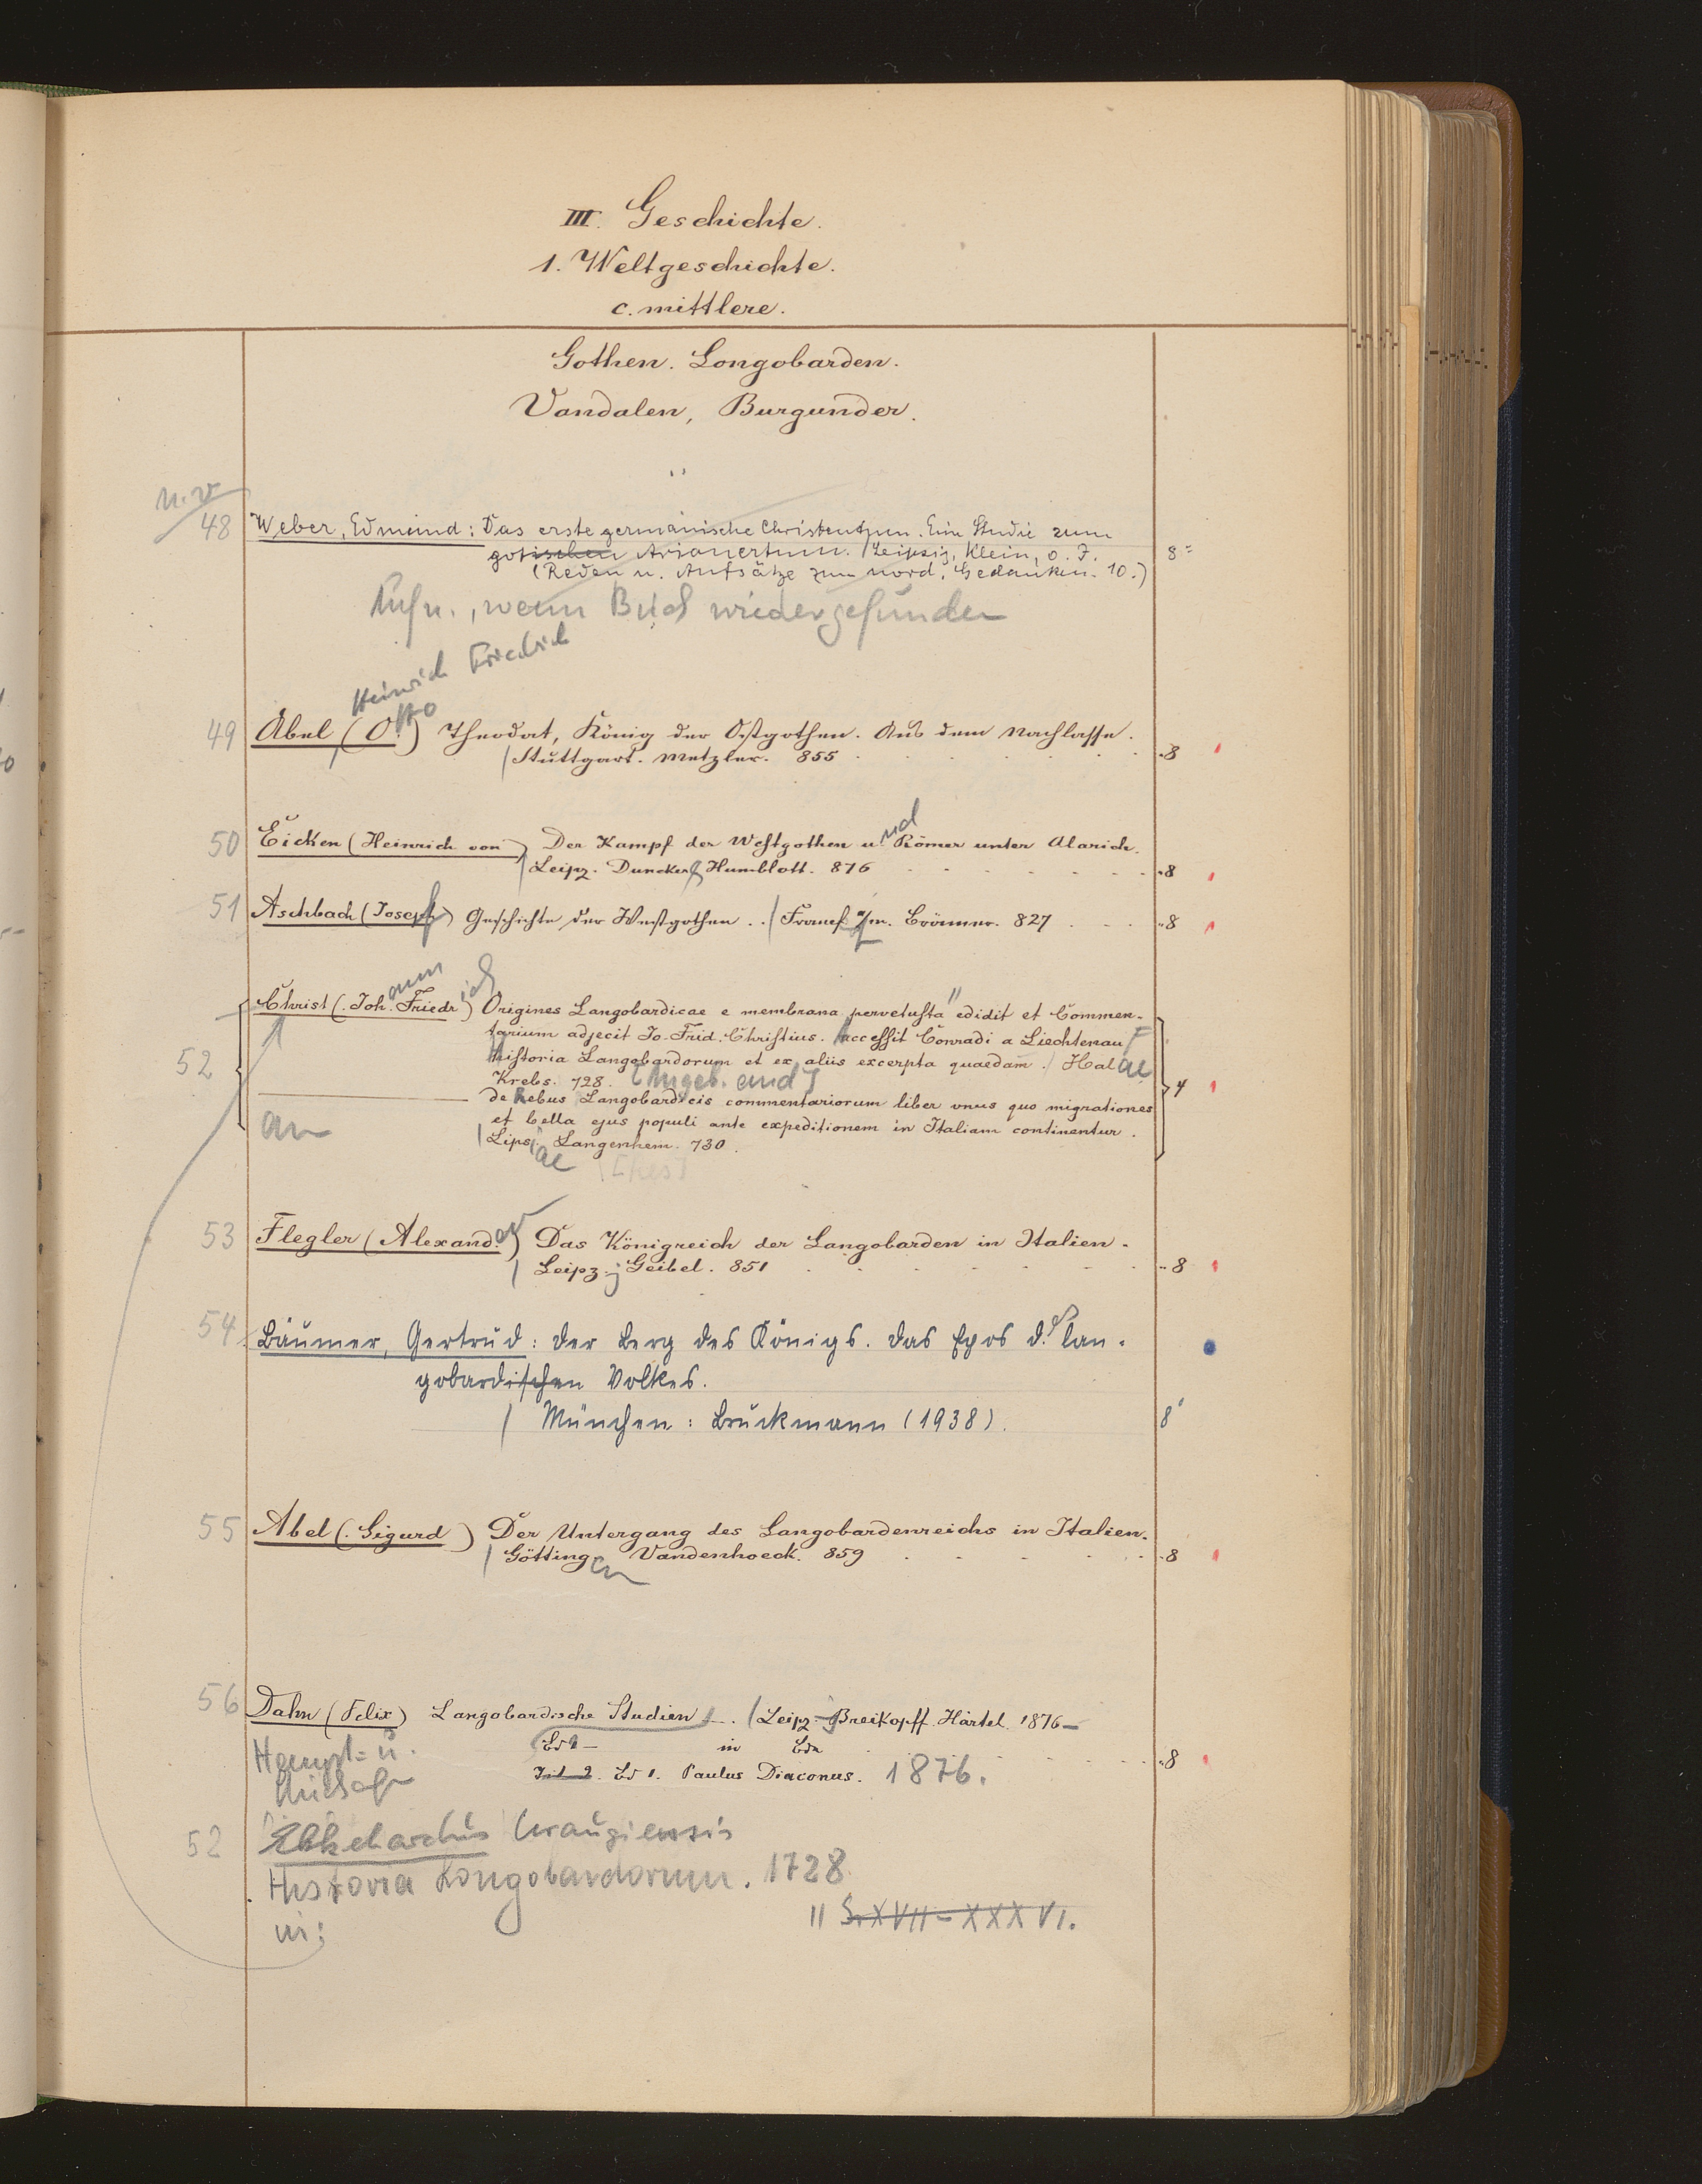 III. Geschichte.
1. Weltgeschichte.
c. mittlere.
Gothen. Longobarden.
Vandalen, Burgunder.
n. v.
48 Weber, Edmund: Das erste germanische Christentum. Eine Studie zum
gotischen Arianertum. / Leipzig, Klein, o. J. 8°
(Reden u. Aufsätze zum nord. Gedanken. 10.)
Aufn., wenn Buch wiedergefunden
Heinrich Friedrich
49 Abel (Otto) Theodat, König der Ostgothen. Aus dem Nachlasse.
/ Stuttgart. Metzler. 855 8
50 Eicken (Heinrich von) Der Kampf der Westgothen und Römer unter Alarich.
/ Leipz. Duncker & Humblott. 876 8
51 Aschbach (Joseph) Geschichte der Westgothen. / Francf a/m. Brönner. 827 8
52 Christ (Johann Friedrich) Origines Langobardicae e membrana pervetusta edidit et Commen-
tarium adjecit Jo. Frid. Christius. Accessit Conradi a Liechtenau
Historia Langobardorum et ex aliis excerpta quaedam. / Halae
Krebs. 728. [Angeb. and]
——— de Rebus Langobardicis commentariorum liber unus quo migrationes 4
an et bella ejus populi ante expeditionem in Italiam continentur.
/ Lipsiae Langenhem. 730.
53 Flegler (Alexander) Das Königreich der Langobarden in Italien.
/ Leipz. Geibel. 851 8
54 Bäumer, Gertrud: Der Berg des Königs. Das Epos d. lan-
gobardischen Volkes.
/ München: Bruckmann (1938). 8°
55 Abel (Sigurd) Der Untergang des Langobardenreichs in Italien.
/ Göttingen Vandenhoeck. 859 8
56 Dahn (Felix) Langobardische Studien. / Leipz. Breikopff Härtel. 1876—
Haupt- u. Bd — in Bdn 8
Bd 1. Paulus Diaconus. 1876.
52 Ekkehardus Uraugiensis
Historia Longobardorum. 1728
in: S. XVII-XXXVI.